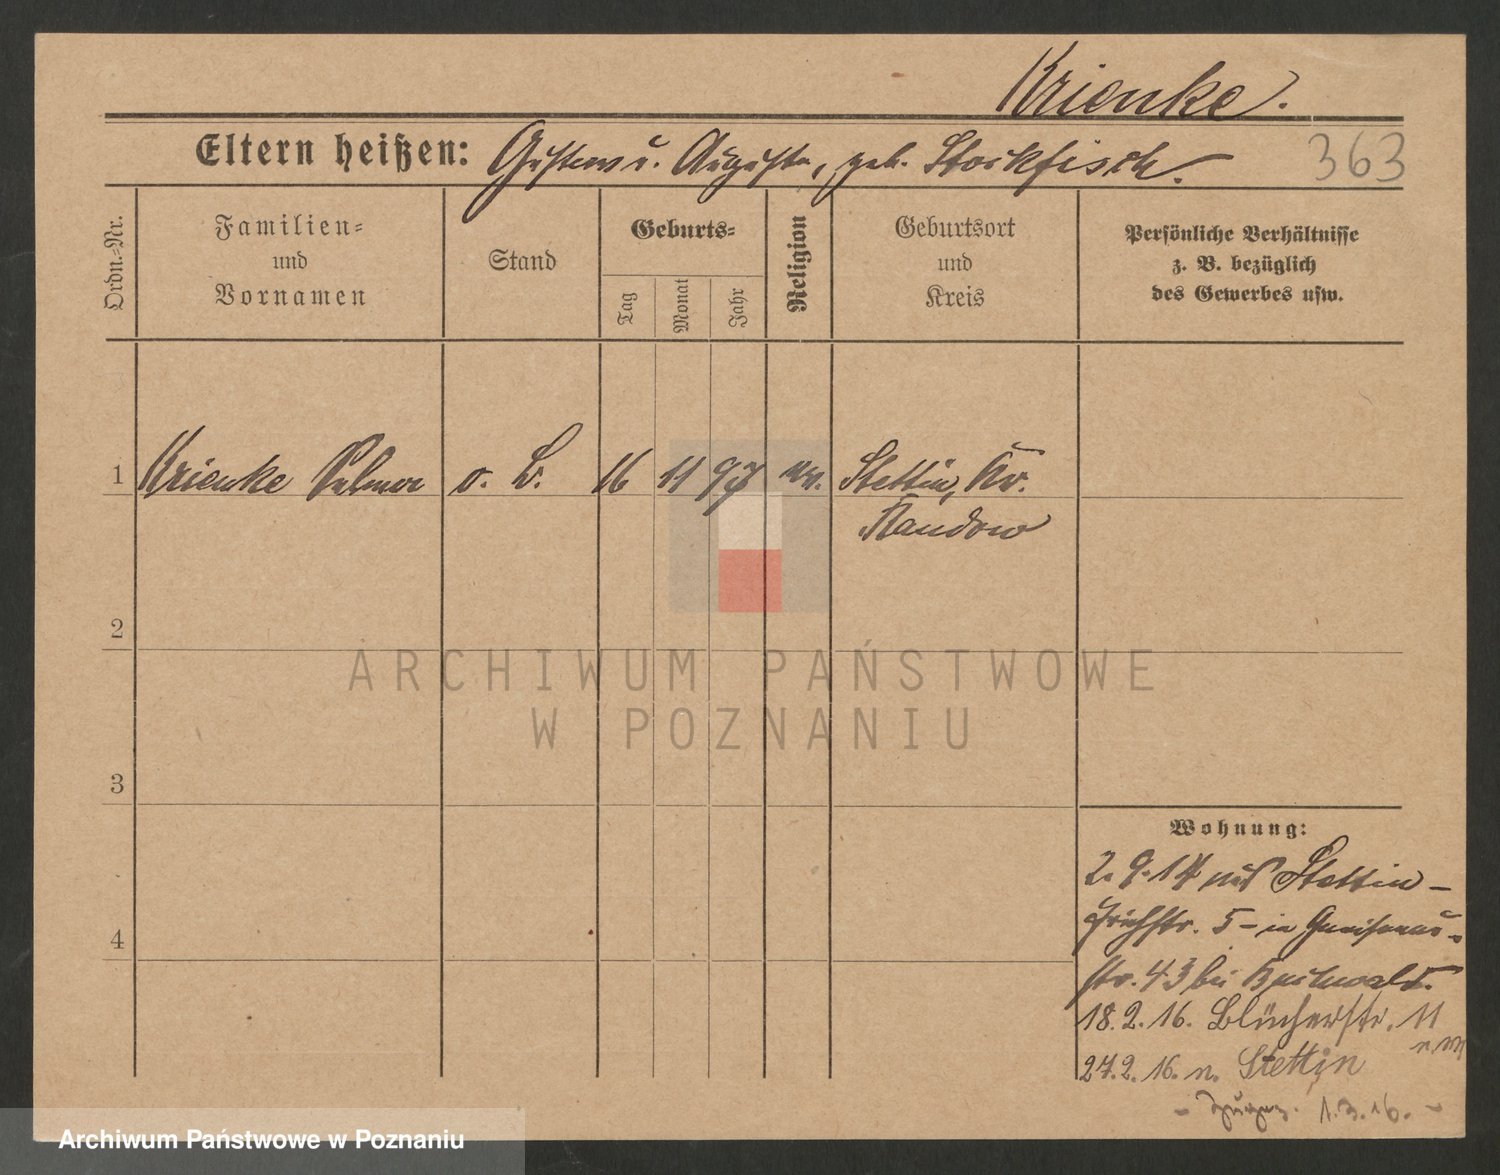 Krienke.
Eltern heißen: Gustav u. Auguste, geb. Stockfisch.
363
Ordn.=Nr.
Familien=
und
Vornamen
Stand
Geburts=
Tag
Monat
Jahr
Religion
Geburtsort
und
Kreis
Persönliche Verhältnisse
z. B. bezüglich
des Gewerbes usw.
1 Krienke o. B. 16 11 97 ev. Stettin, Kr.
Randow
2
3
4
Wohnung:
2. 9. 14 aus Stettin –
5 – in Gneisenau-
str. 43 bei
18. 2. 16. Blücherstr. 11
27. 2. 16. n. Stettin
1. 3. 16. –
ARCHIWUM PAŃSTWOWE
W POZNANIU
Archiwum Państwowe w Poznaniu